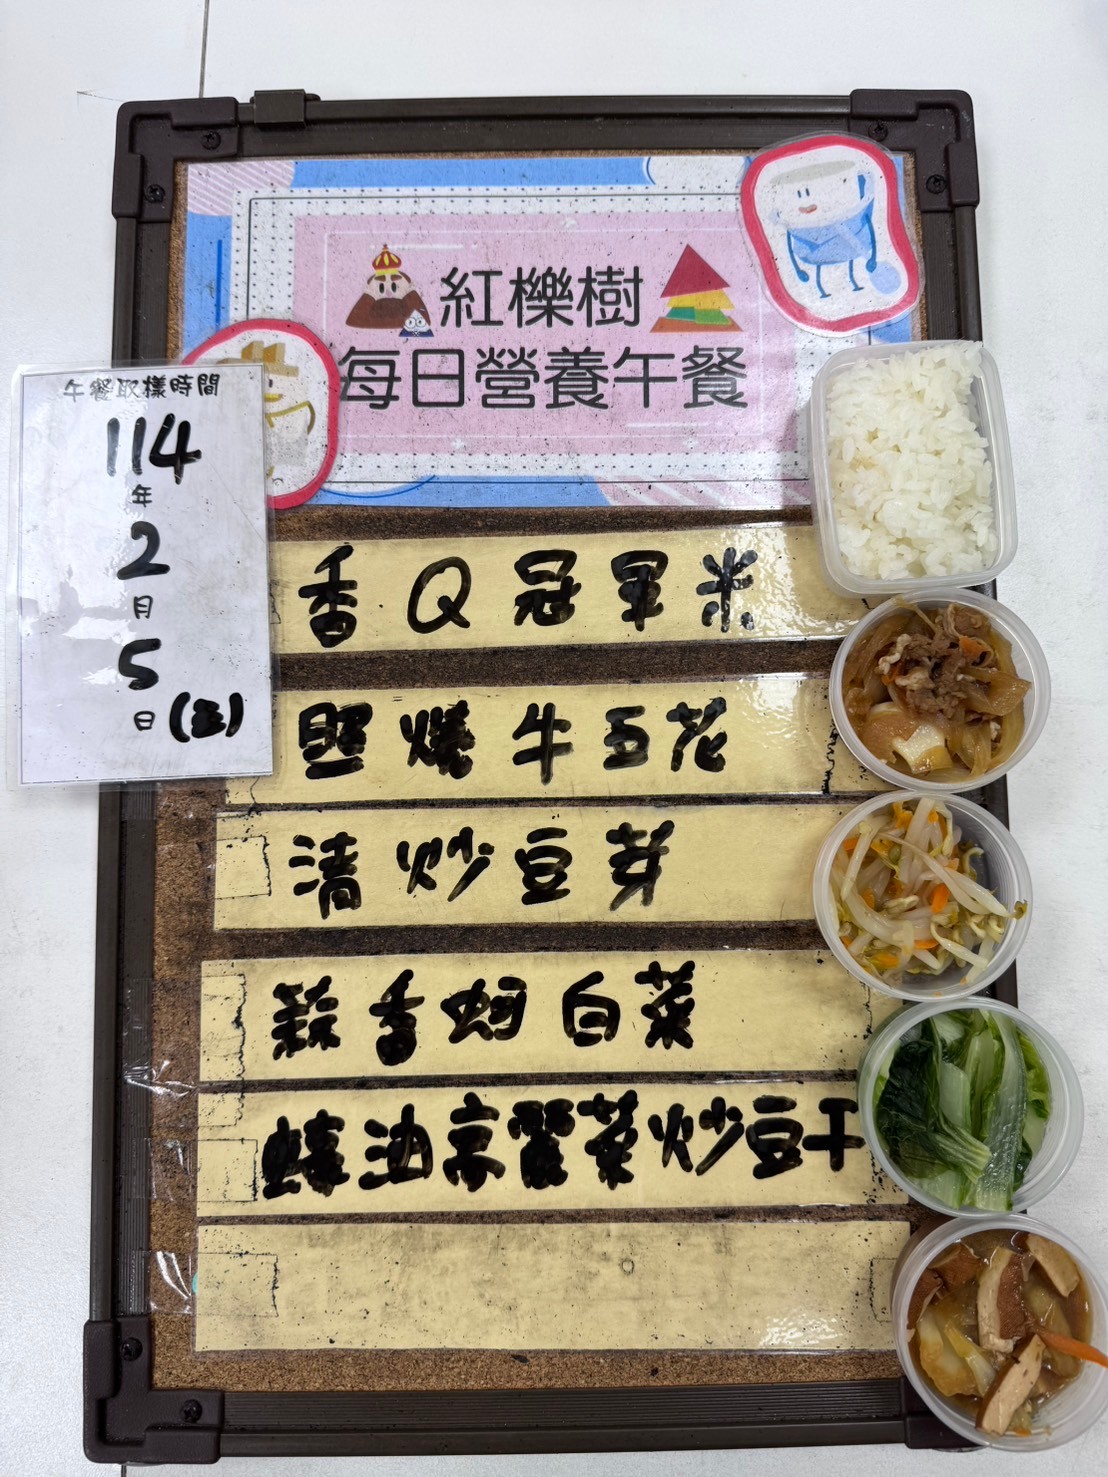 紅櫟樹
每日營養午餐
午餐取樣時間
114
年
2
月
5
日
香Q冠軍米
照燒牛五花
清炒豆芽
蒜香蚵白菜
蠔油高麗菜炒豆干